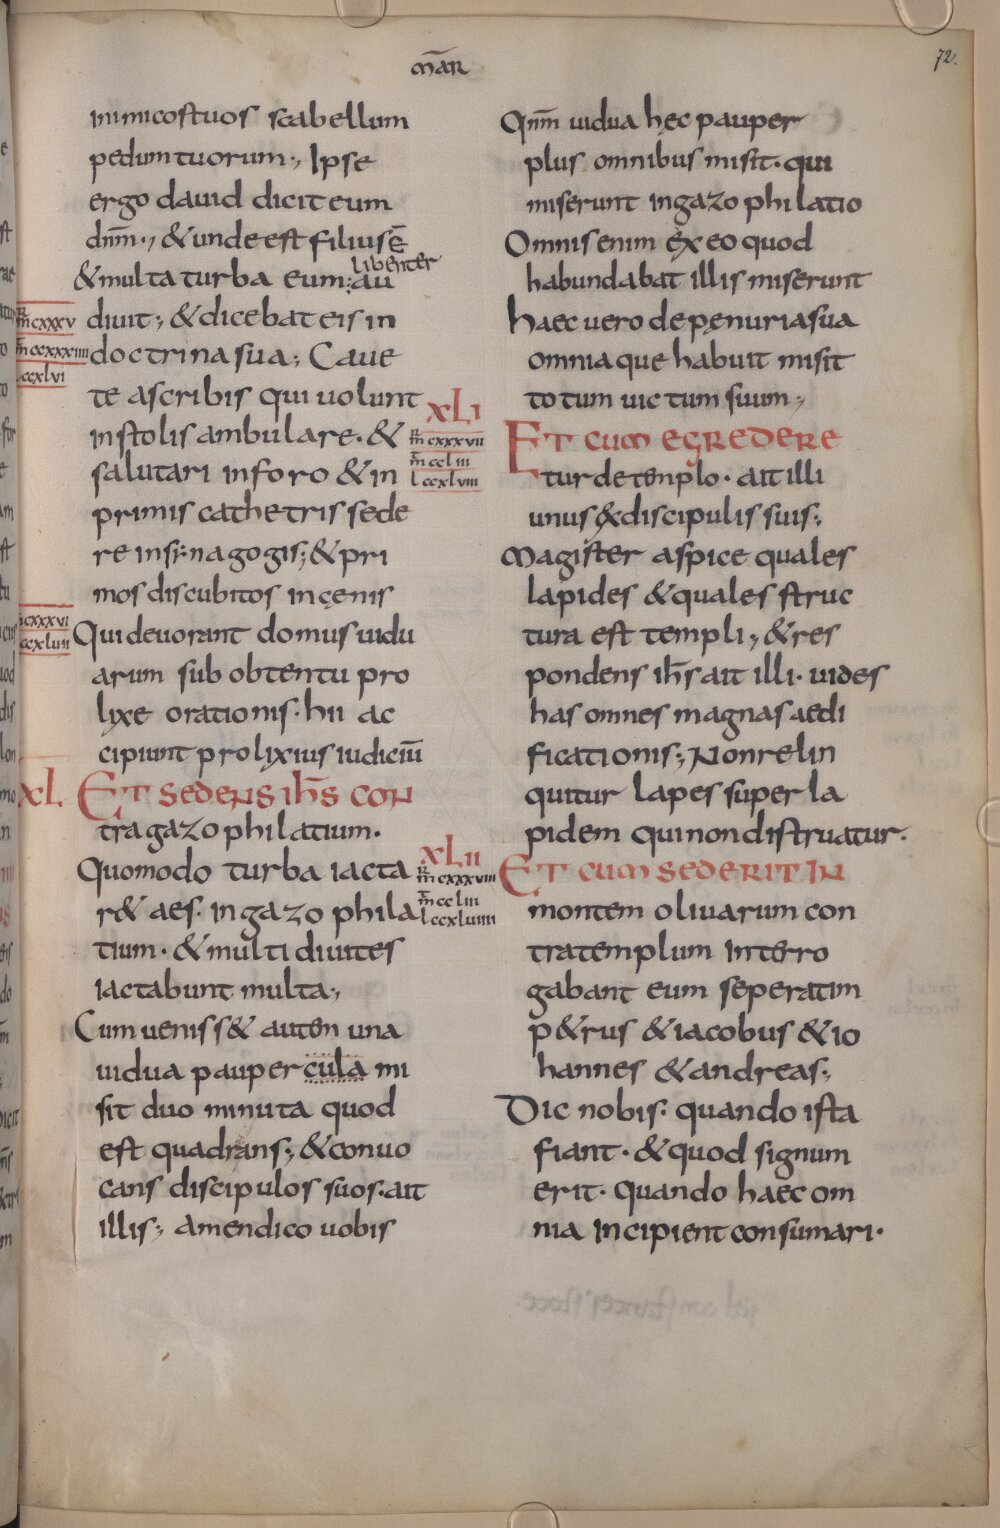 m̄ar
72.
inimicos tuos scabellum
pedum tuorum·, Ipse
ergo dauid dicit eum
dn̄m·, & unde est filius ē
& multa turba eum; au
libenter
diuit; & dicebat eis in
doctrina sua; Caue
te a scribis qui uolunt
in stolis ambulare· &
salutari in foro & in
primis cathetris sede
re in sinagogis; & pri
mos discubitos in cęnis
Qui deuorant domus uidu
arum sub obtentu pro
lixe orationis· hii ac
cipiunt prolixius iudiciū
XL Et sedens ih̄s con
tra gazophilatium·
Quomodo turba iacta
r& aes· in gazophila
tium· & multi diuites
iactabunt multa·,
Cumueniss& autem una
uidua paupercula mi
sit duo minuta quod
est quadrans; & conuo
cans discipulos suos· ait
illis; amen dico uobis
m̄ cxxxv
m̄ ccxxxiiii
ccxlvi
cxxxvi
ccxlvii
XLI
m̄ cxxxvii
m̄ cclii
l ccxlviii
XLII
m̄ cxxxviii
m̄ ccliii
l ccxlviiii
Qn̄m uidua hęc pauper
plus omnibus misit· qui
miserunt in gazophilatio
Omnis enim ex eo quod
habundabat illis miserunt
haec uero de pęnuria sua
omnia que habuit misit
totum uictum suum·,
Et cum egredere
tur de templo· ait illi
unus ex discipulis suis;
Magister aspice quales
lapides & quales struc
tura est templi; & res
pondens ih̄s ait illi· uides
has omnes magnas aedi
ficationis; Non relin
quitur lapes super la
pidem qui non distruatur·
Et cum sederit in
montem oliuarum con
tra templum interro
gabant eum seperatim
p&rus & iacobus & io
hannes & andreas;
Dic nobis· quando ista
fiant· & quod signum
erit· quando haec om
nia incipient consumari·